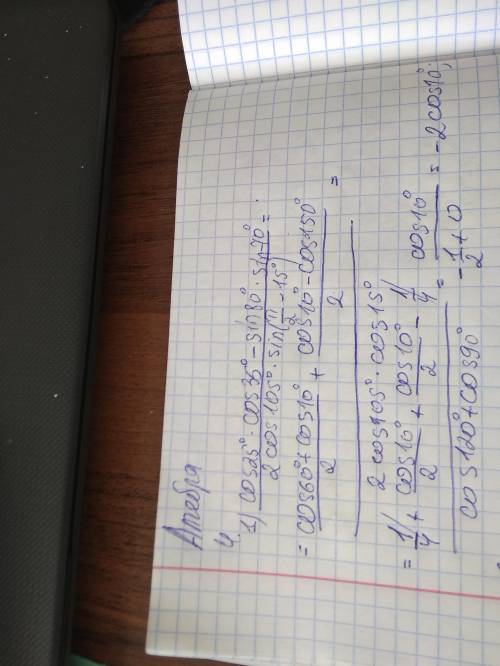 Алгебра
4.
1) cos25° · cos35° - sin80° · sin70° / 2cos105° · sin(π/2 - 15°) =
= cos60° + cos10° / 2 + cos10° - cos150° / 2 / 2cos105° · cos15° =
= 1/4 + cos10° / 2 + cos10° / 2 - 1/4 / cos120° + cos90° = cos10° / -1/2 + 0 = -2cos10°;